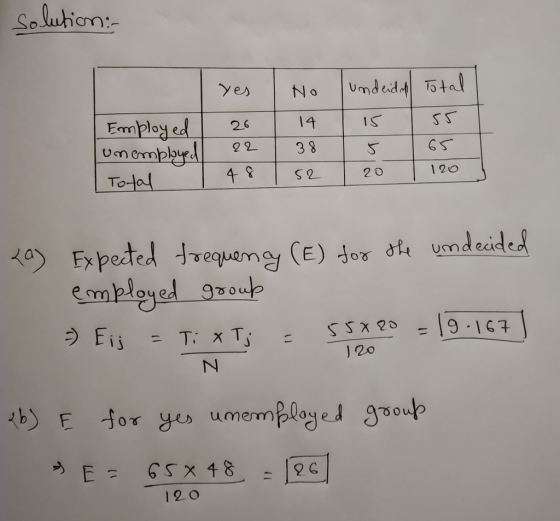 Solution:-
Yes No Undecided Total
Employed 26 14 15 55
Unemployed 22 38 5 65
Total 48 52 20 120
(a) Expected frequency (E) for the undecided
employed group
⇒ Eij = Ti × Tj / N = 55×20 / 120 = 9.167
(b) E for yes unemployed group
⇒ E = 65 × 48 / 120 = 26